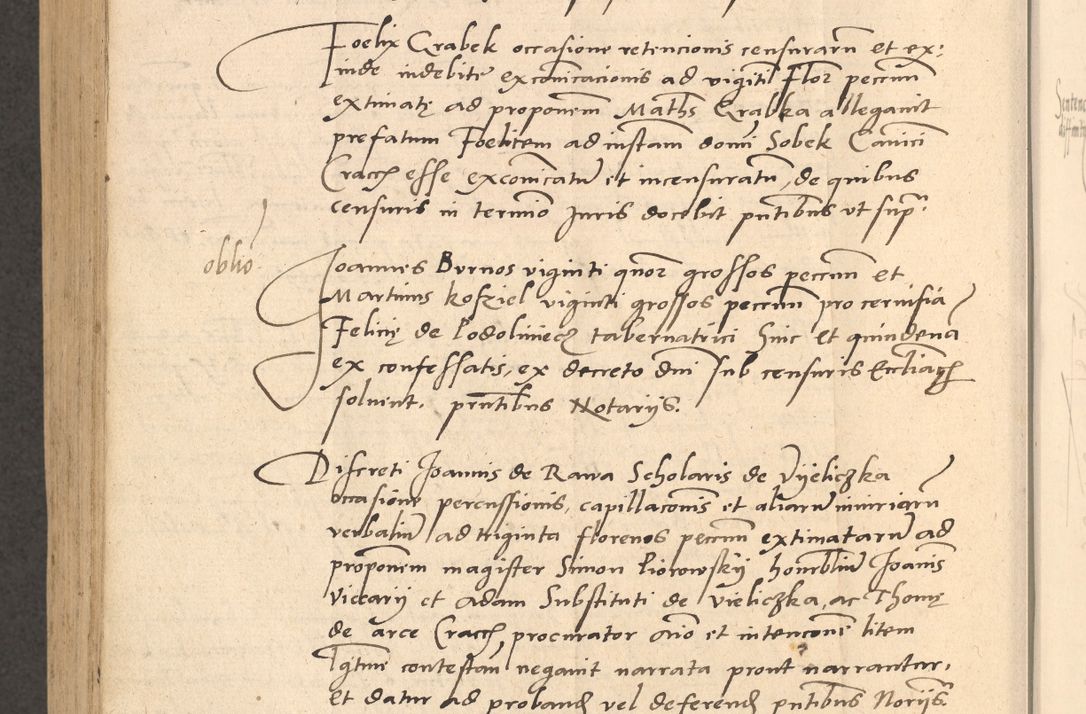 Foelix Grabek occasione retencionis censurarū et ex:
inde indebite excōicacionis ad vigiti Flor peccun
extimatę ad proponem Maths Grabka allegauit
prefatum Foelicem ad instam domi Sobek Canici
Cracȝ esse exconicatū et incensuratū, de quibus
censuris in termīo Juris docebit pn̄tibus vt supr.
oblio
Joannes Burnos viginti quor grossos peccun et
Martinus Kosziel viginti grossos peccun pro ceruisia
Felicię de Podoliniecz tabernatrici hinc et quindena
ex confessatis, ex decreto dni sub censuris Eccliacȝ
soluent. pn̄tibus Notarijs.
Discreti Joannis de Rawa Scholaris de Vyeliczka
occasione percussionis, capillaconis et aliarū iniuriarū
verbaliū ad triginta florenos peccun extimatarū ad
proponem magister Simon Piotrowskij honrbliū Joanis
Viccarij et Adam Substituti de Vieliczka, ac Thomę
de arce Cracȝ procurator aīo et intencone litem
contestan negauit narrata prout narrantur,
et datur ad proband vel deferend pn̄tibus Norijs.